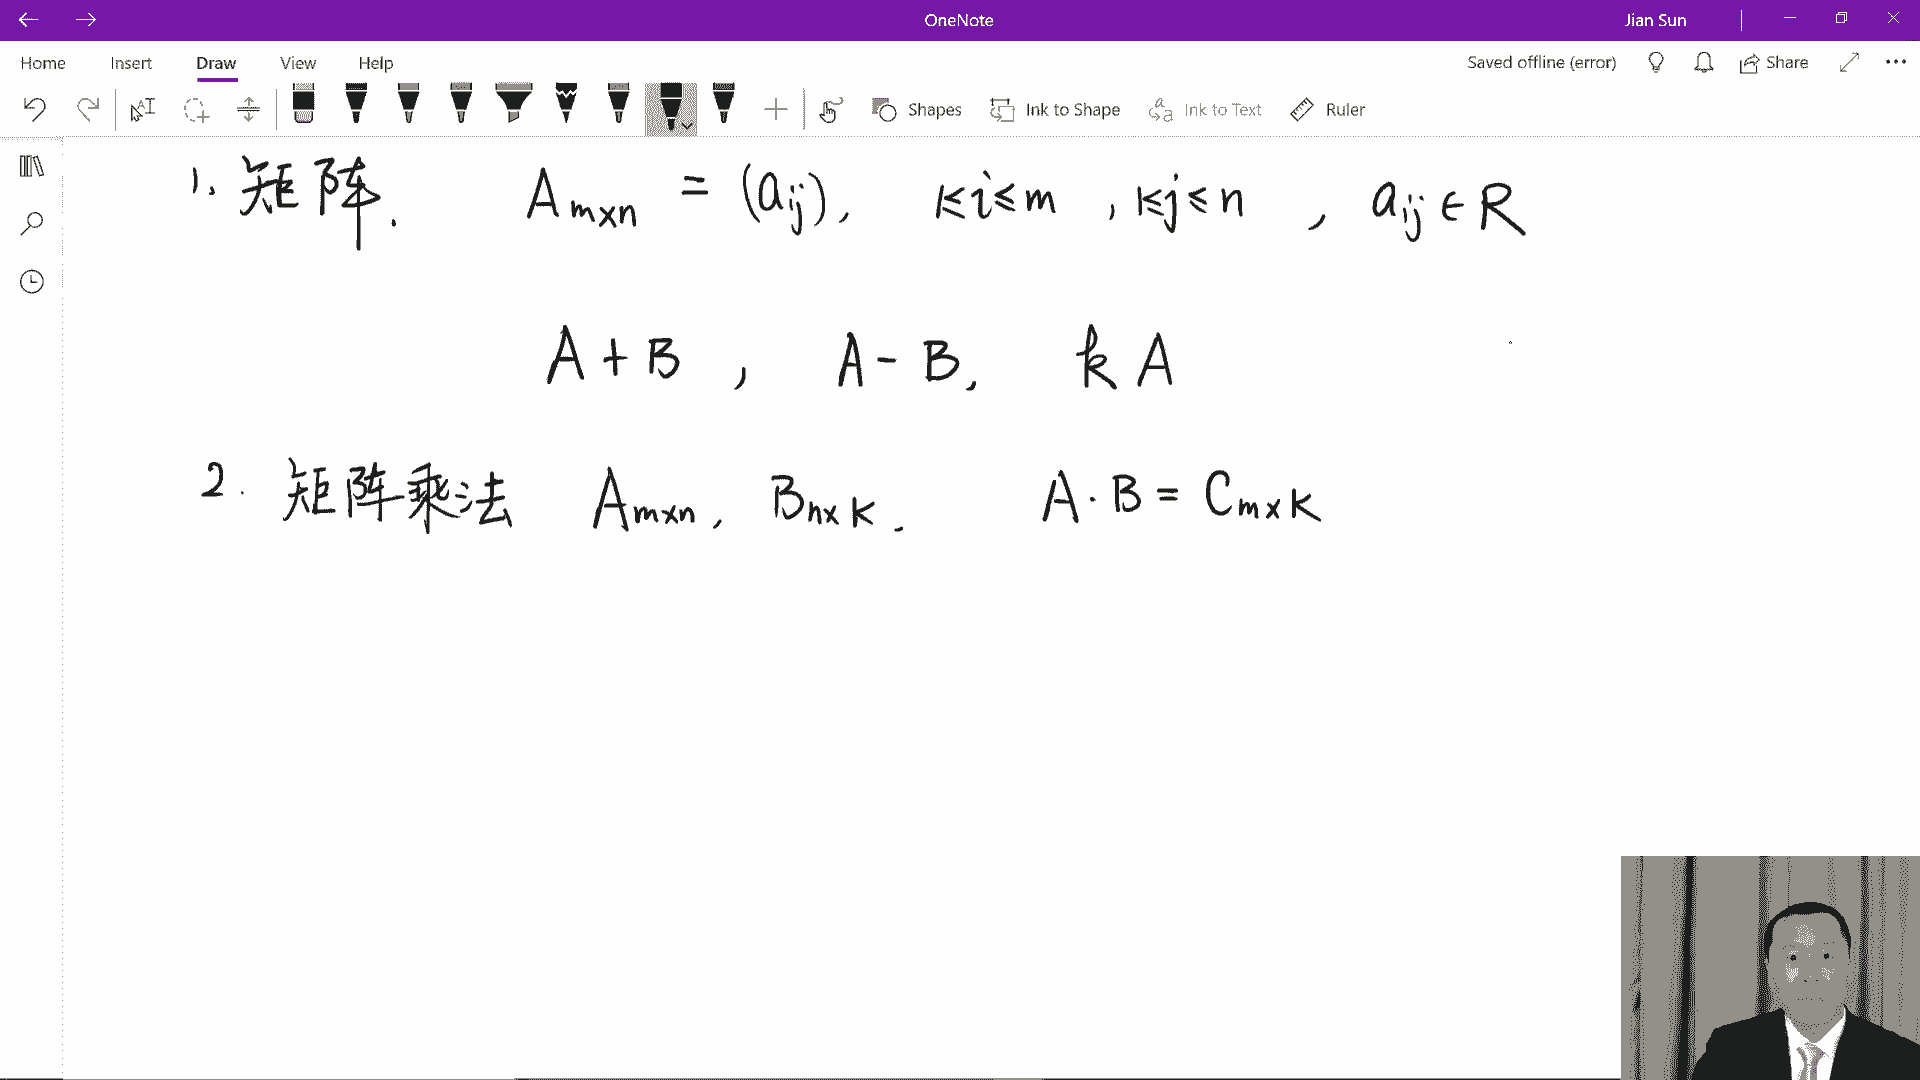 OneNote
Jian Sun
Home Insert Draw View Help
Saved offline (error)
Share
Shapes Ink to Shape Ink to Text Ruler
1. 矩阵. Aₘₓₙ = (aᵢⱼ), 1≤i≤m, 1≤j≤n, aᵢⱼ∈R
A+B, A-B, kA
2. 矩阵乘法 Aₘₓₙ, Bₙₓₖ. A·B = Cₘₓₖ